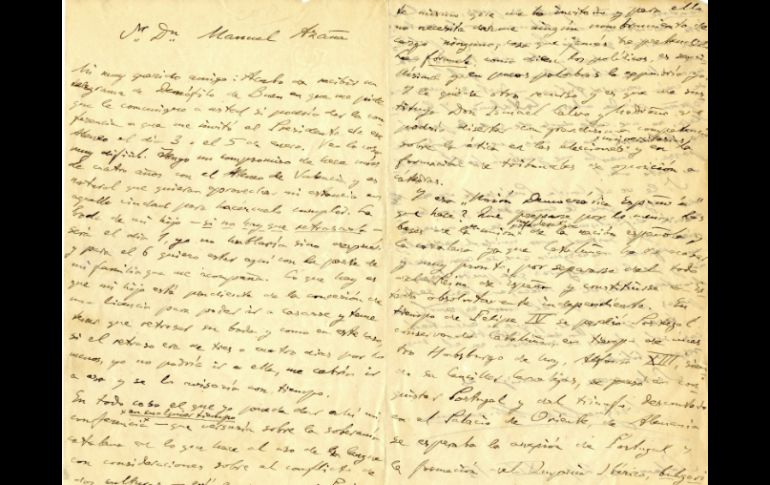 Sr. Dn. Manuel Azaña
Mi muy querido amigo: Acabo de recibir un
telegrama de Demófilo de Buen en que me pide
que le comunique a usted si podría dar la con
ferencia a que me invitó el Presidente de ese
Ateneo el día 3 o el 5 de enero. Veo la cosa
muy difícil. Tengo un compromiso de hace más
de cuatro años con el Ateneo de Valencia y es
natural que quieran aprovechar mi estancia en
aquella ciudad para hacérmelo cumplir. La
boda de mi hijo — si no hay que retrasarla —
será el día 1, yo no hablaría sino después
y para el 6 quiero estar aquí con la parte de
mi familia que me acompaña. Lo que hay es
que mi hijo está pendiente de la concesión de
una licencia para poder ir a casarse y teme
tener que retrasar su boda y como en este caso,
si el retraso era de tres o cuatro días por lo
menos, yo no podría ir a ella, me cabría ir
a eso y se lo avisaría con tiempo.
En todo caso el que yo pueda dar ahí mi
en cualquier tiempo
conferencia — que versaría sobre la soberanía
del uso de la lengua
catalana con lo que hace al
con consideraciones sobre el conflicto de
dos culturas
la invitado y para ello
no necesita darme ningún nombramiento de
cargo ninguno, cosa que jamás he pretendido
La fórmula, como dicen los políticos, es
y en pocas palabras la
Y le queda otro recurso y es que me sus
tituya Don Ismael Calvo Madroño que
podría disertar con grandísima competencia
universitarias
sobre la ética en las elecciones y en la
formación de tribunales de oposición a
cátedras.
Y esa "Unión Democrática Española"
¿qué hace? Que prepare por lo menos las
bases de la unión de la nación española y
la catalana ya que Cataluña ha de acabar
y muy pronto, por separarse del todo
del Reino de España y constituirse en Es
tado absolutamente independiente. En
tiempo de Felipe IV se perdió Portugal
conservando Cataluña; en tiempo de nues
tro Habsburgo de hoy, Alfonso XIII,
de su canciller se pensó en con
quistar Portugal y del triunfo, descontado
en el Palacio de Oriente, de Alemania
se esperaba la anexión de Portugal y
la formación del Imperio Ibérico,